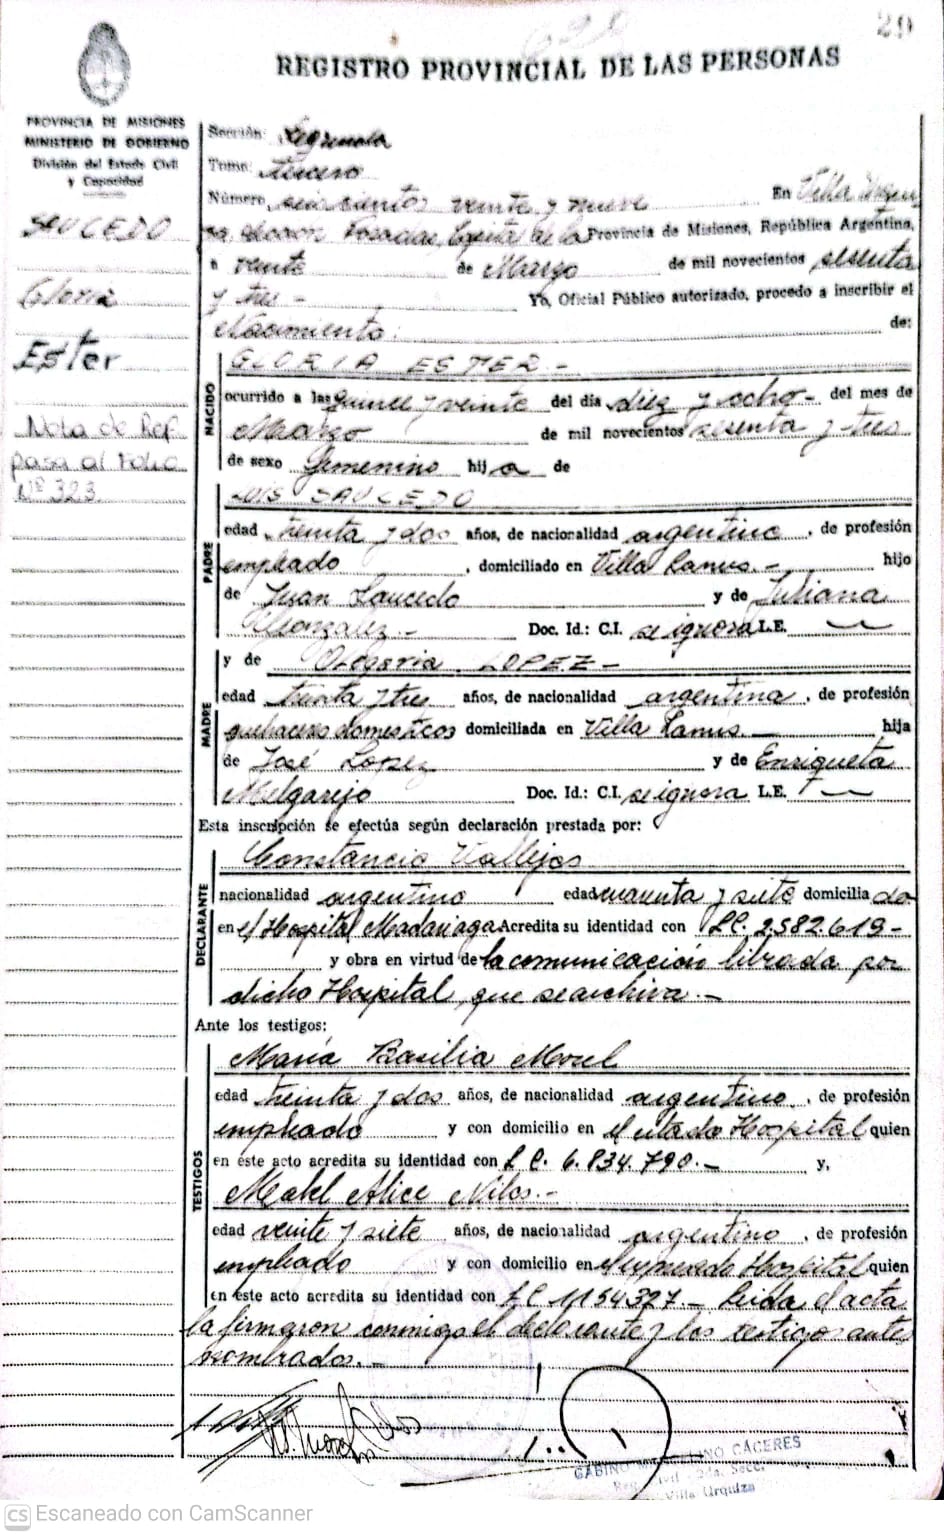 629
29
REGISTRO PROVINCIAL DE LAS PERSONAS
PROVINCIA DE MISIONES
MINISTERIO DE GOBIERNO
División del Estado Civil
y Capacidad
SAUCEDO
Gloria
Ester
Nota de Ref.
pasa al Folio
Nº 323
Sección: Segunda
Tomo: tercero
Número, seis cientos veinte y nueve En Villa Urqui
za, Posadas, Capital de la Provincia de Misiones, República Argentina,
a veinte de Marzo de mil novecientos sesenta
y tres - Yo, Oficial Público autorizado, procedo a inscribir el
Nacimiento: de:
NACIDO
GLORIA ESTER. -
ocurrido a las quince y veinte del día diez y ocho- del mes de
Marzo de mil novecientos sesenta y tres
de sexo femenino hija de
PADRE
LUIS SAUCEDO
edad treinta y dos años, de nacionalidad argentino, de profesión
empleado, domiciliado en Villa Lanus. - hijo
de Juan Saucedo y de Juliana
Gonzalez.- Doc. Id.: C.I. se ignora L.E. —
MADRE
y de Olegaria LOPEZ -
edad treinta y tres años, de nacionalidad argentina, de profesión
quehaceres domesticos domiciliada en Villa Lanus. - hija
de José Lopez y de Enriqueta
Melgarejo Doc. Id.: C.I. se ignora L.E. —
Esta inscripción se efectúa según declaración prestada por:
DECLARANTE
Constancio Vallejos
nacionalidad argentino edad cuarenta y siete domiciliado
en el Hospital Madariaga Acredita su identidad con 2.582.619-
y obra en virtud de la comunicación librada por
dicho Hospital, que se archiva. -
Ante los testigos:
TESTIGOS
María Basilia Morel
edad treinta y dos años, de nacionalidad argentino, de profesión
empleado y con domicilio en el citado Hospital quien
en este acto acredita su identidad con L C. 6.834.790.- y,
Mabel Alice
edad veinte y siete años, de nacionalidad argentino, de profesión
empleado y con domicilio en el expresado Hospital quien
en este acto acredita su identidad con L C 1154327.- Leida el acta
la firmaron conmigo el declarante y los testigos antes
nombrados. -
GABINO CACERES
Reg. Civil - 2da. Secc.
Villa Urquiza
CS Escaneado con CamScanner